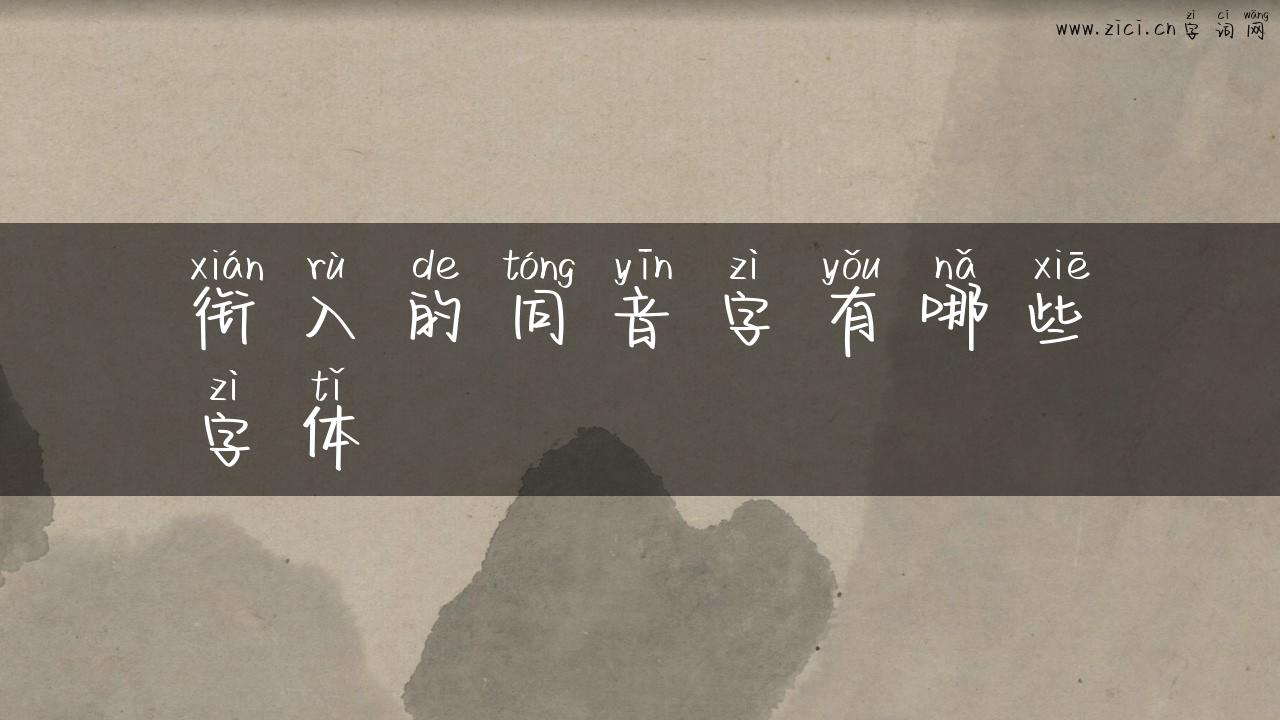 zì cí wǎng
www.zici.cn 字词网
xián rù de tóng yīn zì yǒu nǎ xiē
衔入的同音字有哪些
zì tǐ
字体